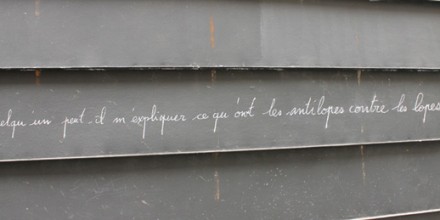 elqu'un peut-il m'expliquer ce qu'ont les antilopes contre les lopes